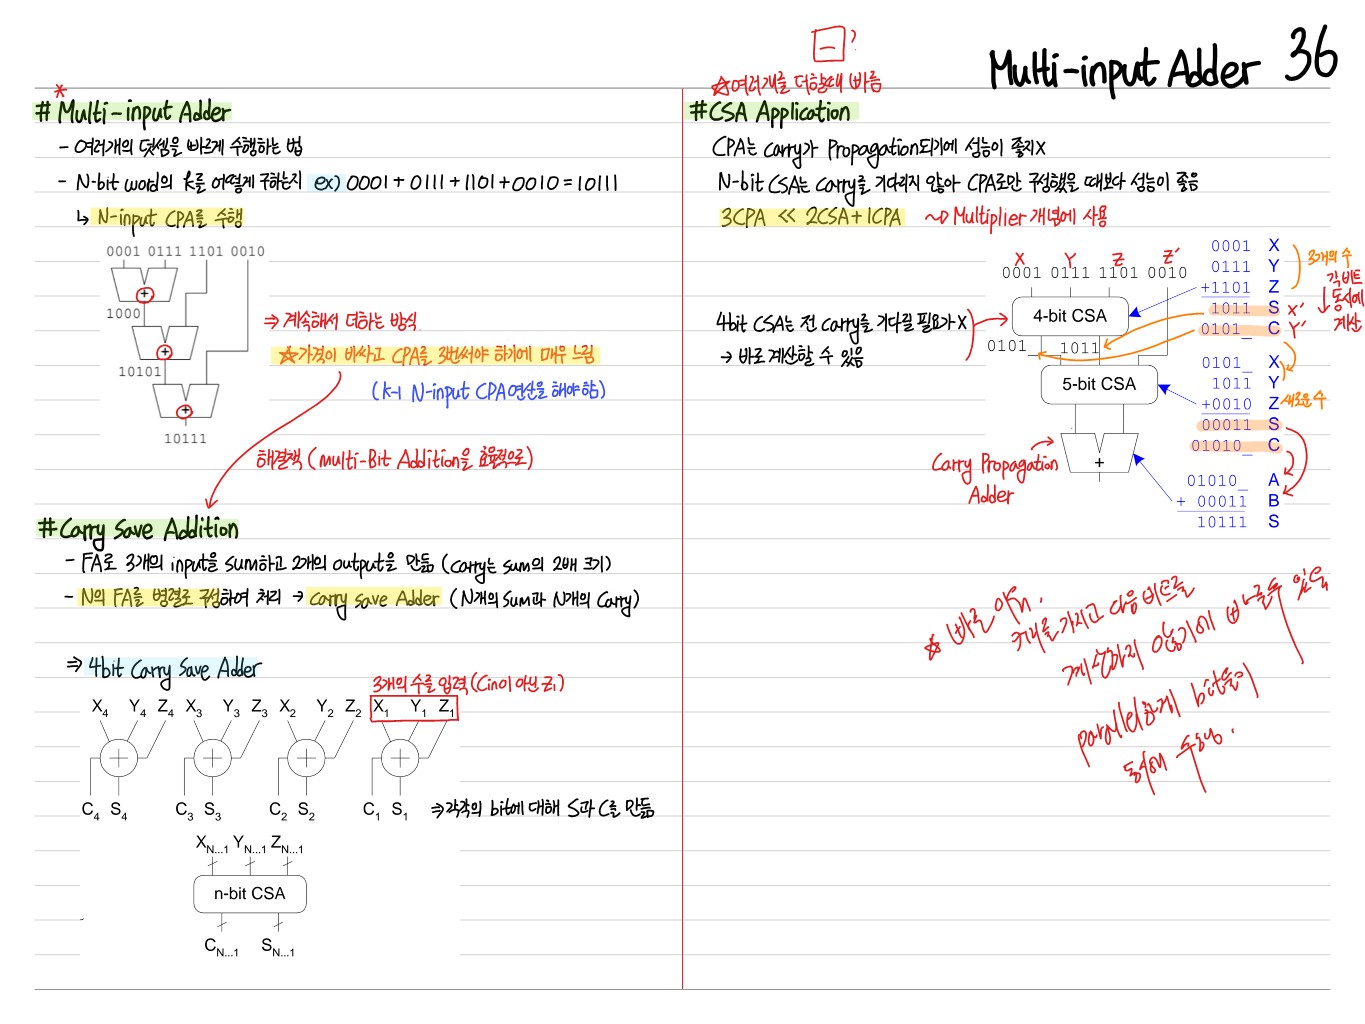 Multi-input Adder 36
*
# Multi-input Adder
- 여러개의 덧셈을 빠르게 수행하는 법
- N-bit word의 k를 어떻게 구하는지 ex) 0001 + 0111 + 1101 + 0010 = 10111
↳ N-input CPA를 수행
0001 0111 1101 0010
+
1000
+
10101
+
10111
⇒ 계속해서 더하는 방식
☆가격이 비싸고 CPA를 3번써야 하기에 매우 느림
(k-1 N-input CPA연산을 해야함)
해결책 (multi-Bit Addition을 효율적으로)
# Carry Save Addition
- FA로 3개의 input을 sum하고 2개의 output을 만듦 (carry는 sum의 2배 크기)
- N의 FA를 병렬로 구성하여 처리 → carry save Adder (N개의 Sum과 N개의 Carry)
⇒ 4bit Carry Save Adder
3개의 수를 입력 (Cin이 아닌 Z₁)
X₄ Y₄ Z₄ X₃ Y₃ Z₃ X₂ Y₂ Z₂ X₁ Y₁ Z₁
C₄ S₄ C₃ S₃ C₂ S₂ C₁ S₁
⇒ 각각의 bit에 대해 S과 C를 만듦
X_N...1 Y_N...1 Z_N...1
n-bit CSA
C_N...1 S_N...1
?
☆여러개를 더할때 빠름
# CSA Application
CPA는 carry가 Propagation되기에 성능이 좋지X
N-bit CSA는 carry를 기다리지 않아 CPA로만 구성했을 때보다 성능이 좋음
3CPA << 2CSA+1CPA ~> Multiplier 개념에 사용
X Y Z Z'
0001 0111 1101 0010
4-bit CSA
0101_ 1011
5-bit CSA
+
4bit CSA는 전 carry를 기다릴 필요가 X
→ 바로 계산할 수 있음
Carry Propagation
Adder
0001 X
0111 Y
+1101 Z
1011 S X'
0101_ C Y'
3개의 수
각비트
동시에
계산
0101_ X
1011 Y
+0010 Z 새로운수
00011 S
01010_ C
01010_ A
+ 00011 B
10111 S
☆ 빠른 이유.
계산하지 않기에 빠를수 있음
parallel하게 bit들이
동시에 수행.